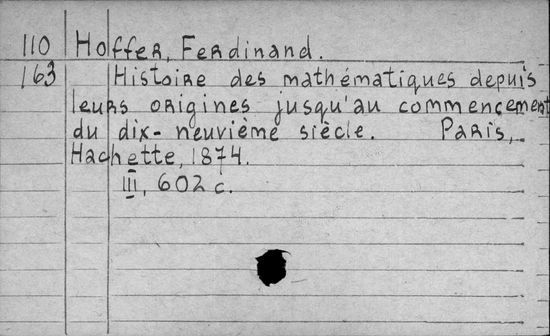 110 Hoffer, Ferdinand.
163 Histoire des mathématiques depuis
leurs origines jusqu'au commencement
du dix-neuvième siècle. Paris,
Hachette, 1874.
III, 602 c.